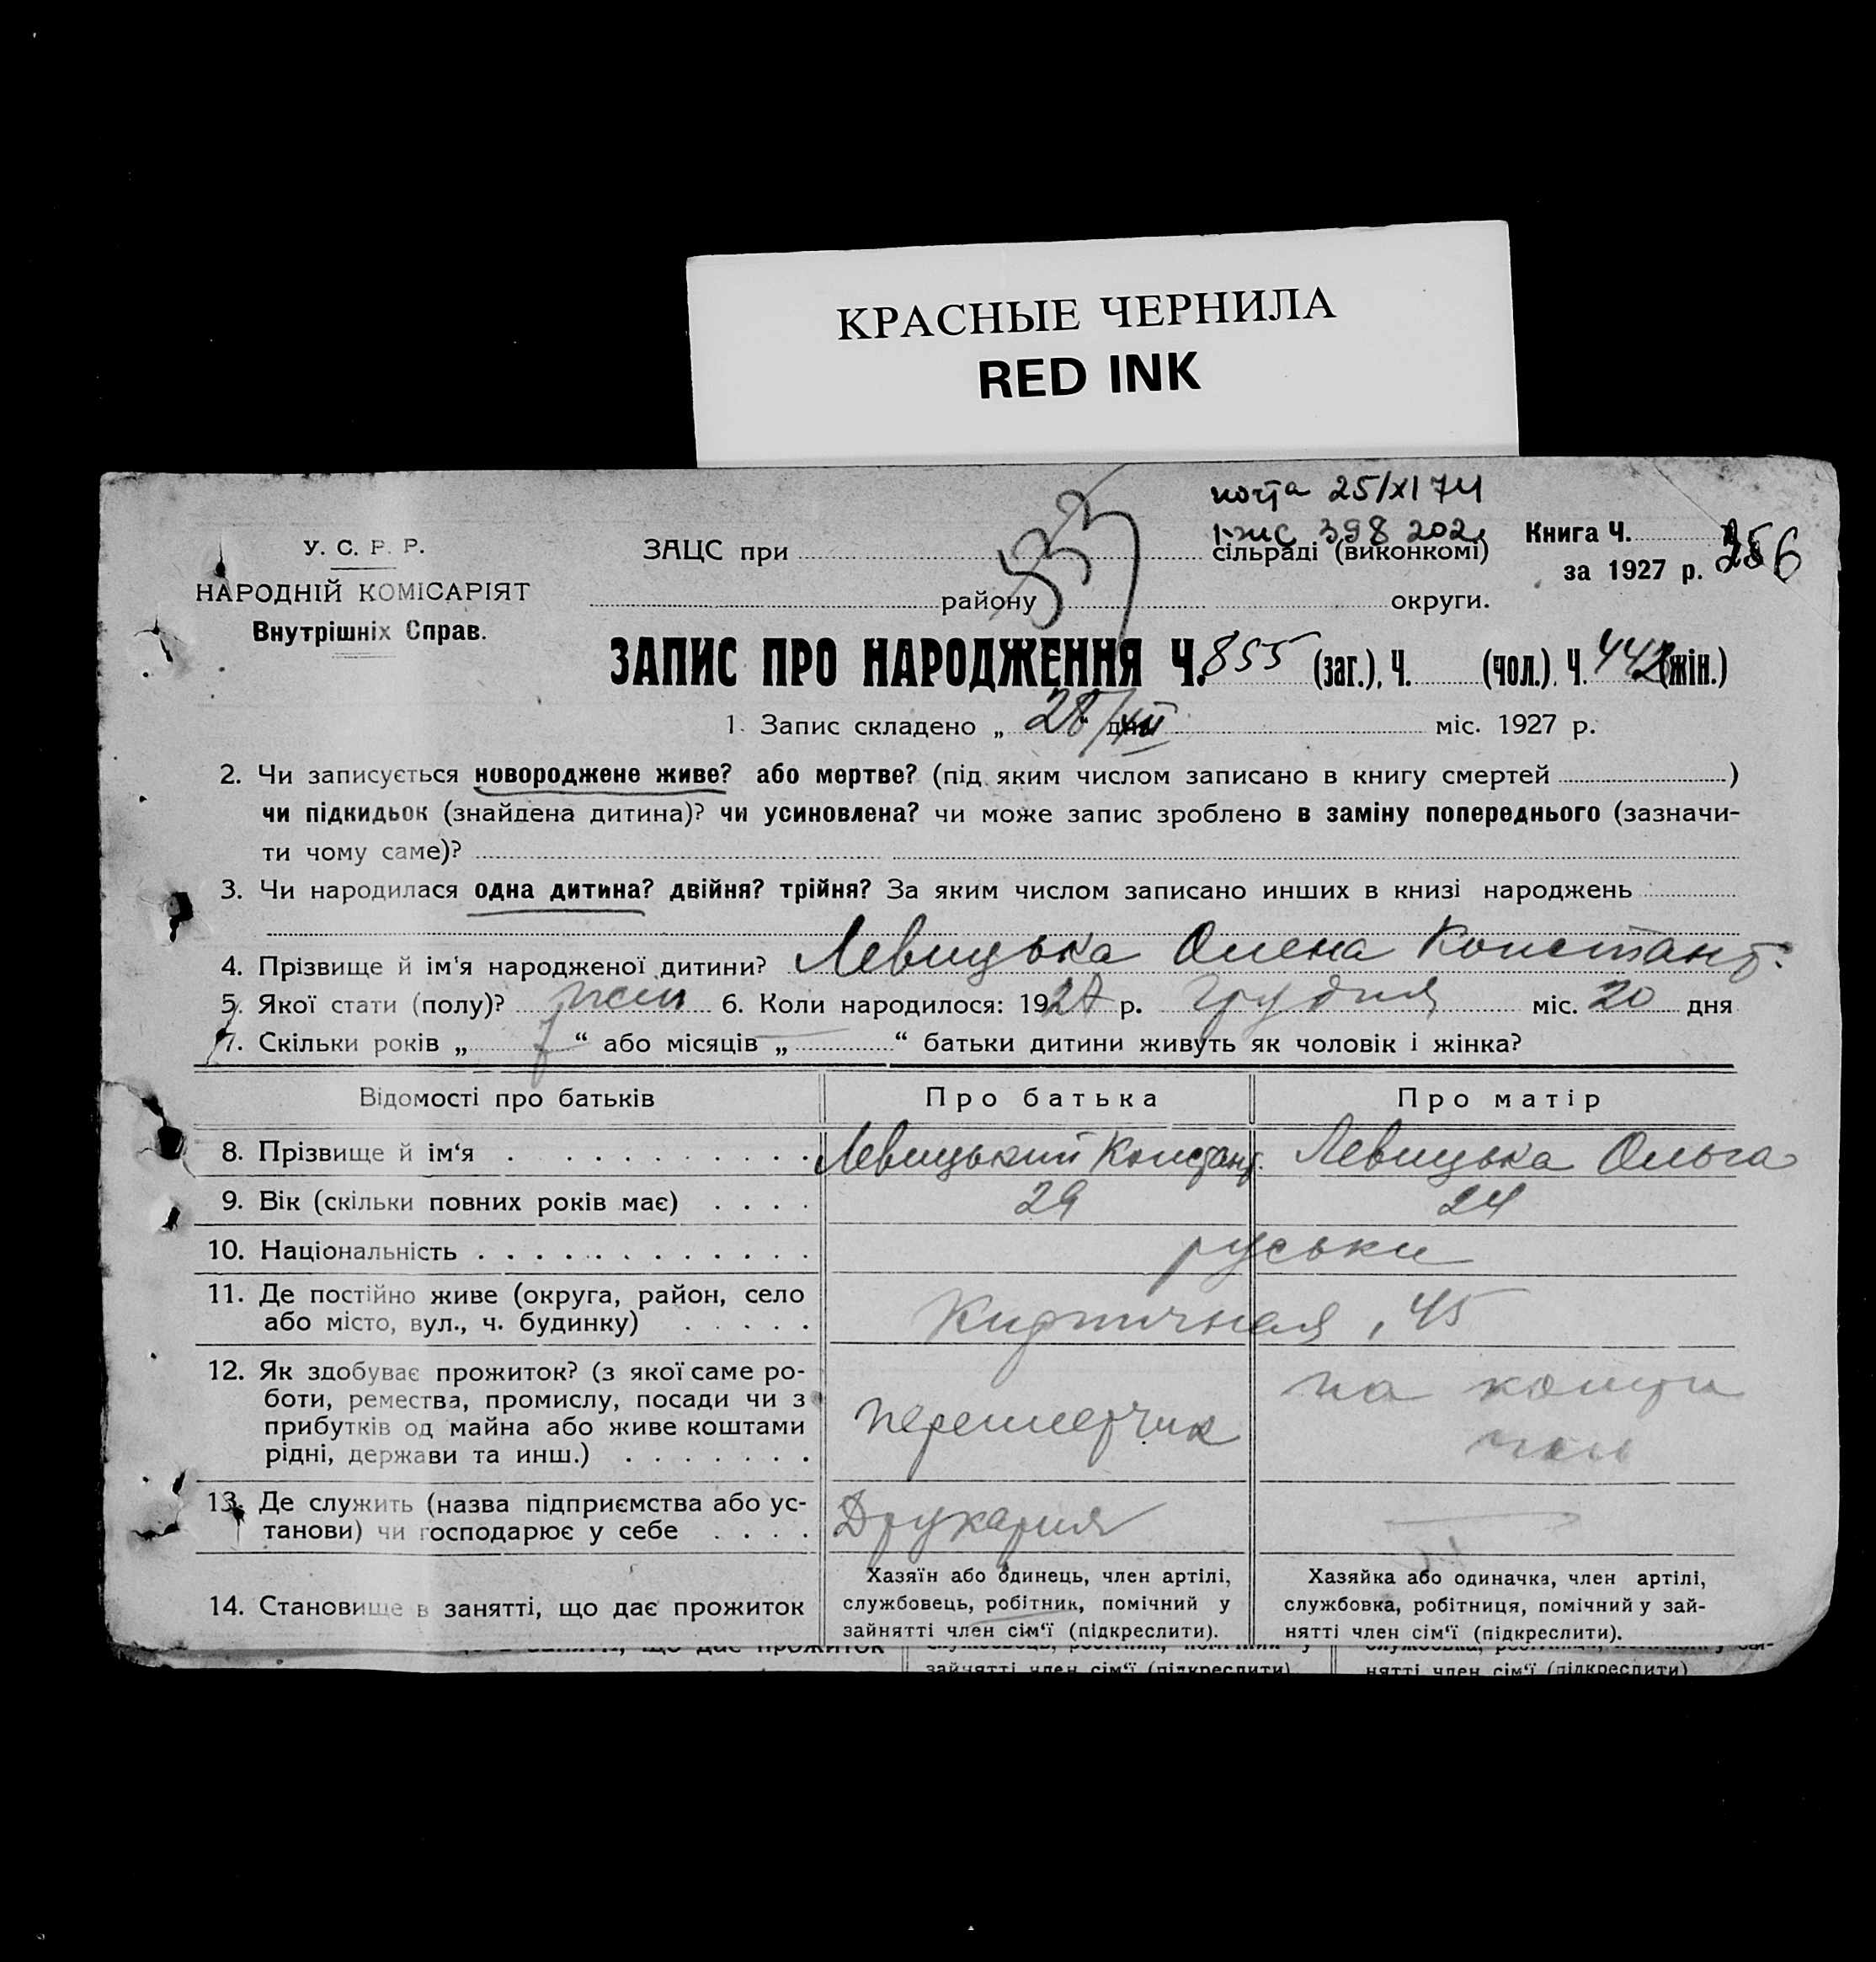 КРАСНЫЕ ЧЕРНИЛА
RED INK
25/XI 74
398 202
У. С. Р. Р.
НАРОДНІЙ КОМІСАРІЯТ
Внутрішніх Справ.
ЗАЦС при сільраді (виконкомі)
району округи.
Книга Ч.
за 1927 р. 256
ЗАПИС ПРО НАРОДЖЕННЯ Ч. 855 (заг.), Ч. (чол.), Ч. 442 (жін.)
1. Запис складено „ 28/XII “ дня міс. 1927 р.
2. Чи записується новороджене живе? або мертве? (під яким числом записано в книгу смертей )
чи підкидьок (знайдена дитина)? чи усиновлена? чи може запис зроблено в заміну попереднього (зазначи-
ти чому саме)?
3. Чи народилася одна дитина? двійня? трійня? За яким числом записано инших в книзі народжень
4. Прізвище й ім'я народженої дитини? Левицька Олена Констант.
5. Якої стати (полу)? жін 6. Коли народилося: 1927 р. грудня міс. 20 дня
7. Скільки років „ 7 “ або місяців „ — “ батьки дитини живуть як чоловік і жінка?
Відомості про батьків Про батька Про матір
8. Прізвище й ім‘я Левицький Констант. Левицька Ольга
9. Вік (скільки повних років має) 29 24
10. Національність руськи
11. Де постійно живе (округа, район, село
або місто, вул., ч. будинку) Кирпичная, 45
12. Як здобуває прожиток? (з якої саме ро-
боти, ремества, промислу, посади чи з
прибутків од майна або живе коштами
рідні, держави та инш.)
на кошти
13. Де служить (назва підприємства або ус-
танови) чи господарює у себе Друкарня —
14. Становище в занятті, що дає прожиток
Хазяїн або одинець, член артілі,
службовець, робітник, помічний у
зайнятті член сім‘ї (підкреслити).
Хазяйка або одиначка, член артілі,
службовка, робітниця, помічний у зай-
нятті член сім‘ї (підкреслити).
зайнятті член сім‘ї (підкреслити)
нятті член сім‘ї (підкреслити)